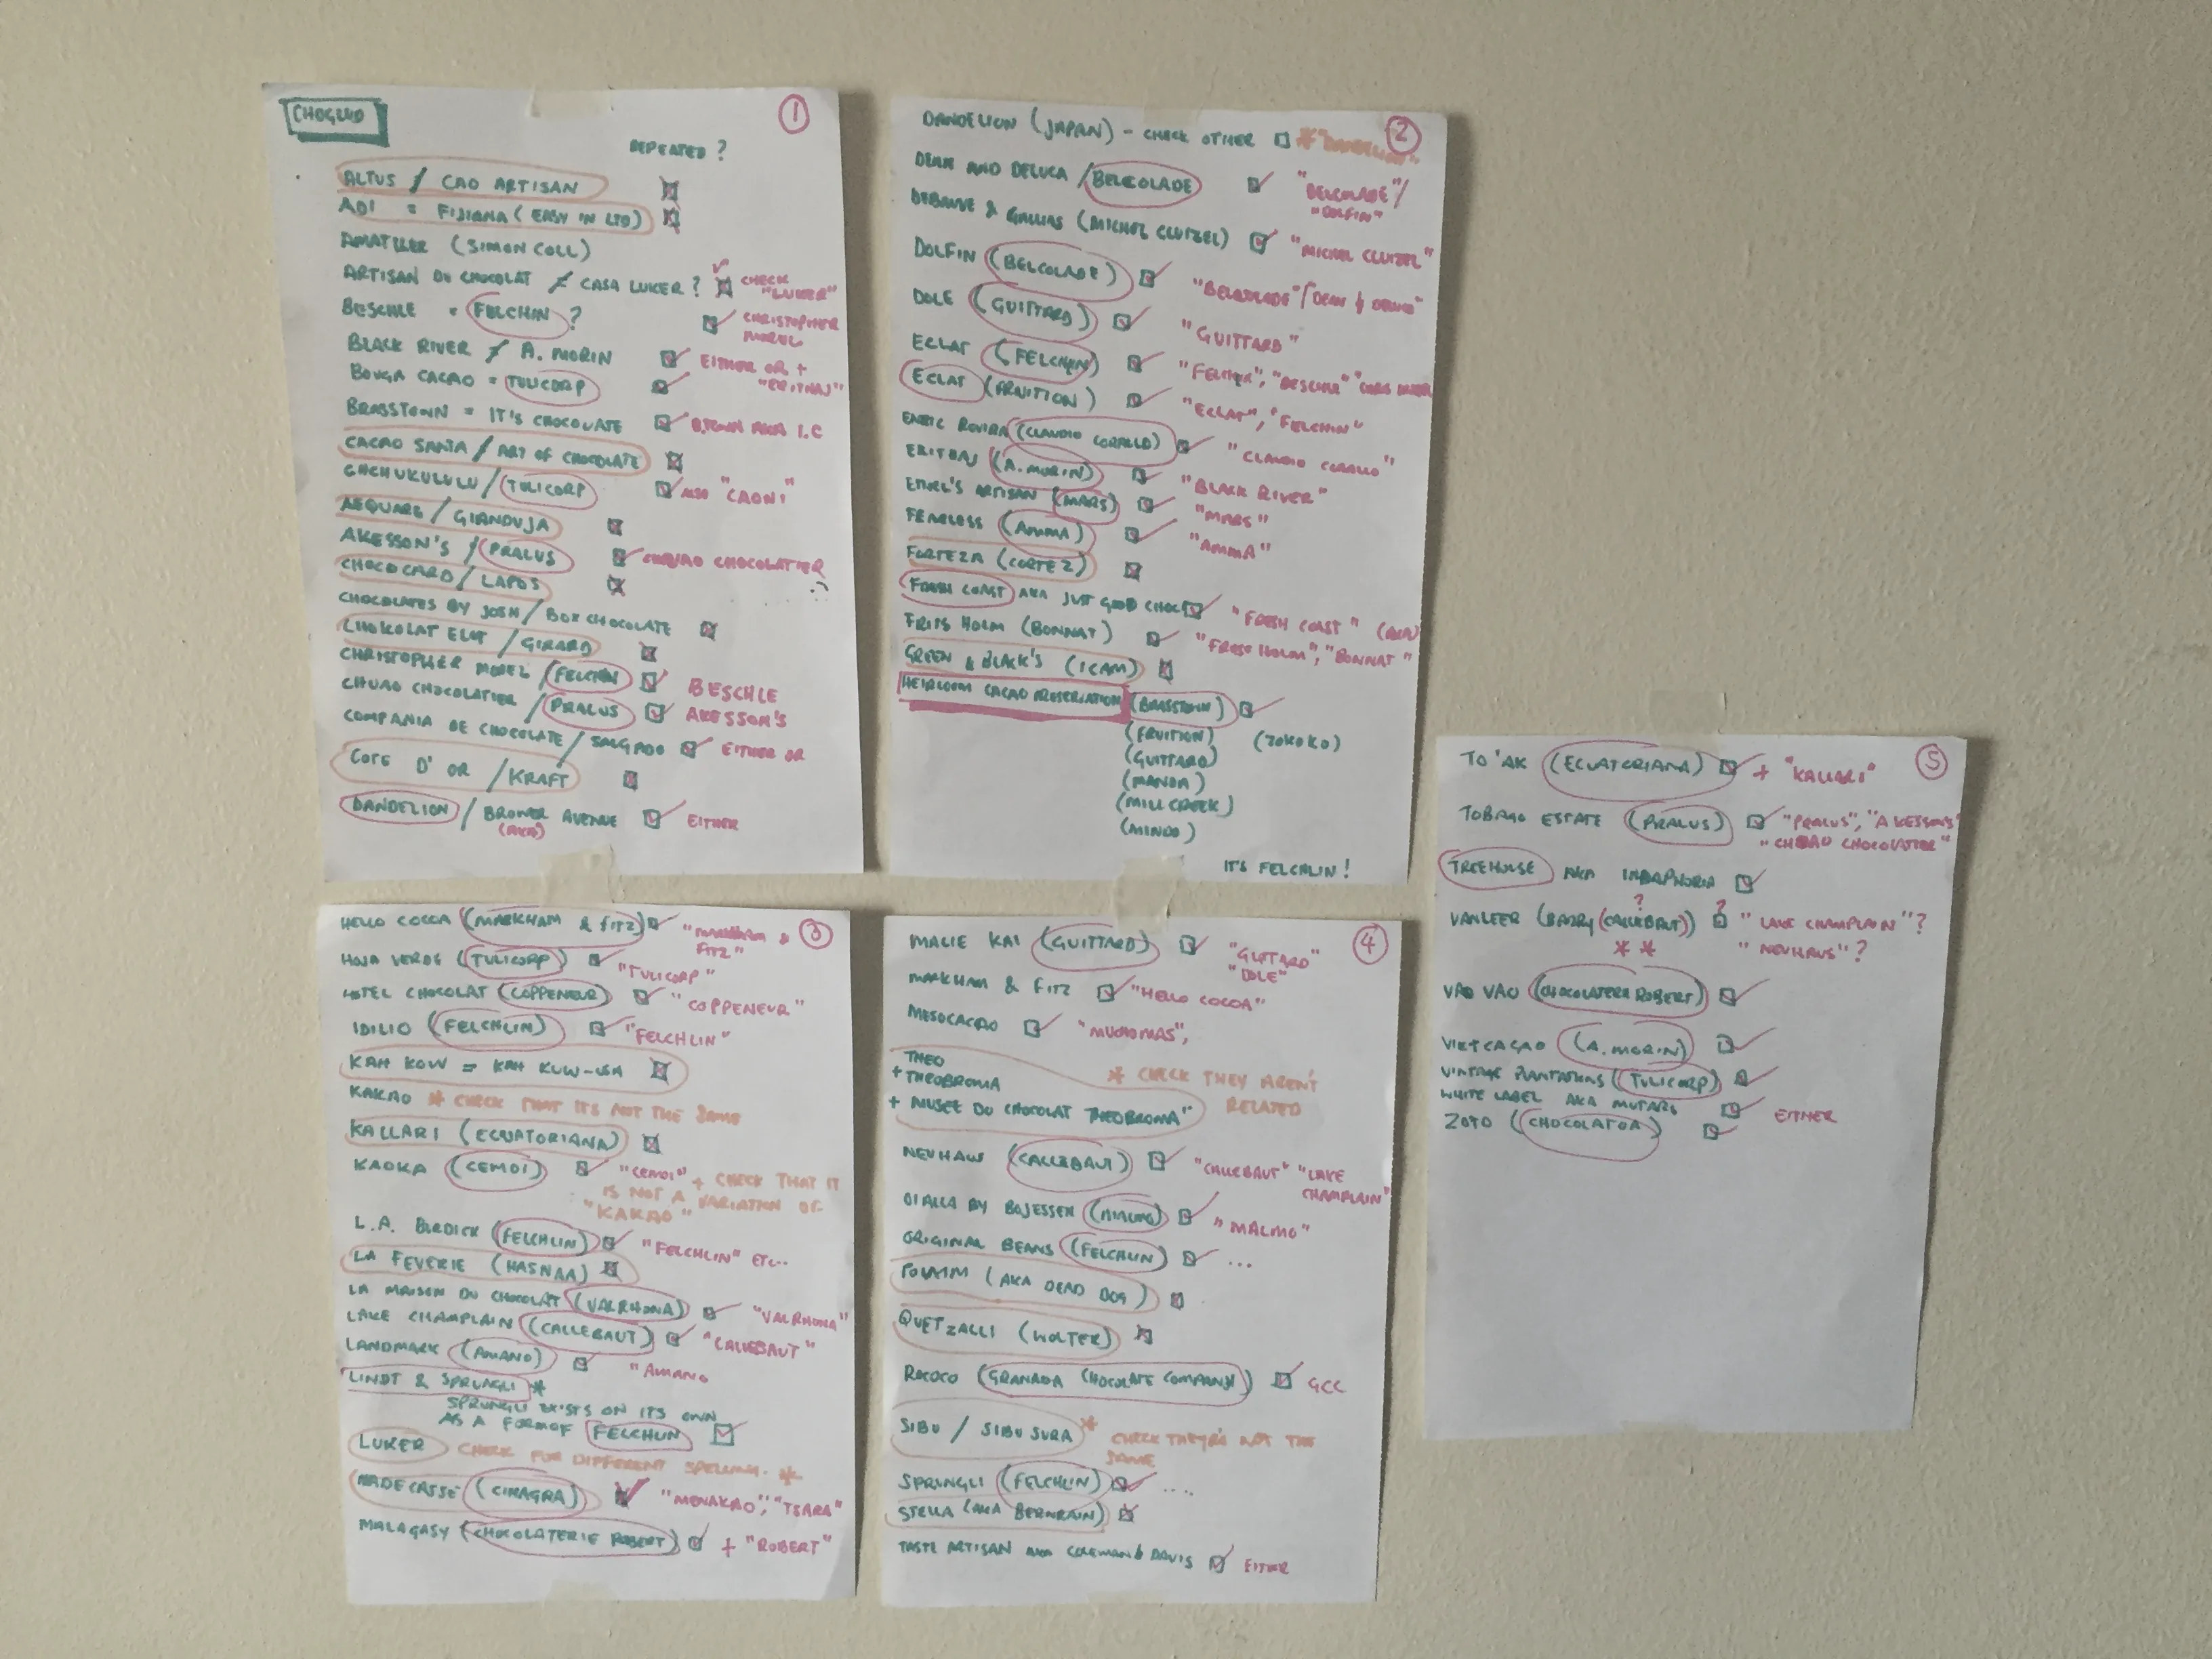 CHOGUID
1
REPEATED?
ALTUS / CAO ARTISAN
ADI = FIJIANA (EASY IN LTD)
AMATLLER (SIMON COLL)
ARTISAN DU CHOCOLAT ≠ CASA LUKER? CHECK "LUKER"
BESCHLE = FELCHIN? CHRISTOPHER MOREL
BLACK RIVER / A. MORIN EITHER OR + "ERITHAJ"
BOUGA CACAO = TULICORP
BRASSTOWN = IT'S CHOCOLATE B.TOWN AKA I.C
CACAO SANTA / ART OF CHOCOLATE
CHCHUKULULU / TULICORP ALSO "CAONI"
AEQUARE / GIANDUJA
AKESSON'S / PRALUS CHUAO CHOCOLATIER
CHOCOCARD / LAPOS
CHOCOLATES BY JOSH / BOX CHOCOLATE
CHOKOLAT ELOT / GIRARD
CHRISTOPHER MOREL / FELCHIN BESCHLE
CHUAO CHOCOLATIER / PRALUS AKESSON'S
COMPANIA DE CHOCOLATE / SALGADO EITHER OR
COTE D'OR / KRAFT
DANDELION / BROWER AVENUE EITHER
(AKA)
2
DANDELION (JAPAN) - CHECK OTHER * "DANDELION"
DEAN AND DELUCA / BELCOLADE "BELCOLADE" / "DOLFIN"
DEBAUVE & GALLAIS (MICHEL CLUIZEL) "MICHEL CLUIZEL"
DOLFIN (BELCOLADE) "BELCOLADE" / "DEAN & DELUCA"
DOLE (GUITTARD) "GUITTARD"
ECLAT (FELCHIN) "FELCHIN", "BESCHLE" "CHRIS MOREL
ECLAT (FRUITION) "ECLAT", "FELCHIN"
ENRIC ROVIRA (CLAUDIO CORALLO) "CLAUDIO CORALLO"
ERITHAJ (A. MORIN) "BLACK RIVER"
ETHEL'S ARTISAN (MARS) "MARS"
FEARLESS (AMMA) "AMMA"
FORTEZA (CORTEZ)
FRESH COAST AKA JUST GOOD CHOC "FRESH COAST" (AKA)
FRITS HOLM (BONNAT) "FRITS HOLM", "BONNAT"
GREEN & BLACK'S (ICAM)
HEIRLOOM CACAO PRESERVATION (BRASSTOWN)
(FRUITION) (ZOKOKO)
(GUITTARD)
(MANOA)
(MILLCREEK)
(MINDO)
IT'S FELCHLIN!
3
HELLO COCOA (MARKHAM & FITZ) "MARKHAM & FITZ"
HOJA VERDE (TULICORP) "TULICORP"
HOTEL CHOCOLAT (COPPENEUR) "COPPENEUR"
IDILIO (FELCHLIN) "FELCHLIN"
KAH KOW = KAH KOW-USA
KAKAO * CHECK THAT ITS NOT THE SAME
KALLARI (ECUATORIANA)
KAOKA (CEMOI) "CEMOI" + CHECK THAT IT
IS NOT A VARIATION OF
"KAKAO"
L.A. BURDICK (FELCHLIN) "FELCHLIN" ETC..
LA FEVERIE (HASNAA)
LA MAISON DU CHOCOLAT (VALRHONA) "VALRHONA"
LAKE CHAMPLAIN (CALLEBAUT) "CALLEBAUT"
LANDMARK (AMANO) "AMANO
LINDT & SPRUNGLI *
SPRUNGLI EXISTS ON ITS OWN
AS A FORM OF FELCHLIN
LUKER CHECK FOR DIFFERENT SPELLING. *
MADECASSE (CINAGRA) "MENAKAO", "TSARA"
MALAGASY (CHOCOLATERIE ROBERT) + "ROBERT"
4
MALIE KAI (GUITTARD) "GUITTARD"
"DOLE"
MARKHAM & FITZ "HELLO COCOA"
MESOCACAO "MUCHOMAS",
THEO
+ THEOBROMA
+ MUSEE DU CHOCOLAT THEOBROMA"
* CHECK THEY AREN'T
RELATED
NEUHAUS (CALLEBAUT) "CALLEBAUT" "LAKE CHAMPLAIN"
OIALLA BY BOJESSEN (MALMO) "MALMO"
ORIGINAL BEANS (FELCHLIN) ...
POTOMIM (AKA DEAD DOG)
QUETZALLI (WOLTER)
ROCOCO (GRANADA CHOCOLATE COMPANY) GCC
SIBU / SIBU SURA * CHECK THEY'RE NOT THE
SAME
SPRUNGLI (FELCHLIN) ....
STELLA (AKA BERNRAIN)
TASTE ARTISAN AKA COLEMAN & DAVIS EITHER
5
TO'AK (ECUATORIANA) + "KALLARI"
TOBAGO ESTATE (PRALUS) "PRALUS", "AKESSON'S
"CHUAO CHOCOLATIER"
TREEHOUSE AKA INDAPHORIA
VANLEER (BARRY (CALLEBAUT)) ? ? "LAKE CHAMPLAIN"?
* * "NEUHAUS"?
VAO VAO (CHOCOLATERIE ROBERT)
VIETCACAO (A. MORIN)
VINTAGE PLANTATIONS (TULICORP)
WHITE LABEL AKA MUTARI EITHER
ZOTO (CHOCOLATOA)